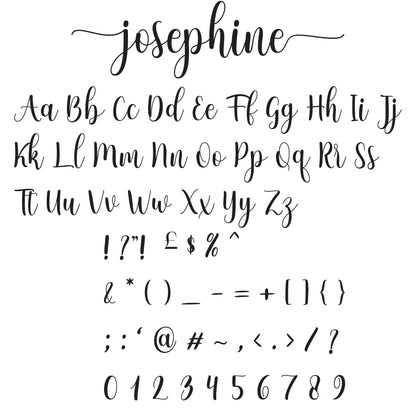 josephine
Aa Bb Cc Dd Ee Ff Gg Hh Ii Jj
Kk Ll Mm Nn Oo Pp Qq Rr Ss
Tt Uu Vv Ww Xx Yy Zz
! ?"! £ $ % ^
& * ( ) _ - = + [ ] { }
; : ‘ @ # ~ , < . > / ?
0 1 2 3 4 5 6 7 8 9